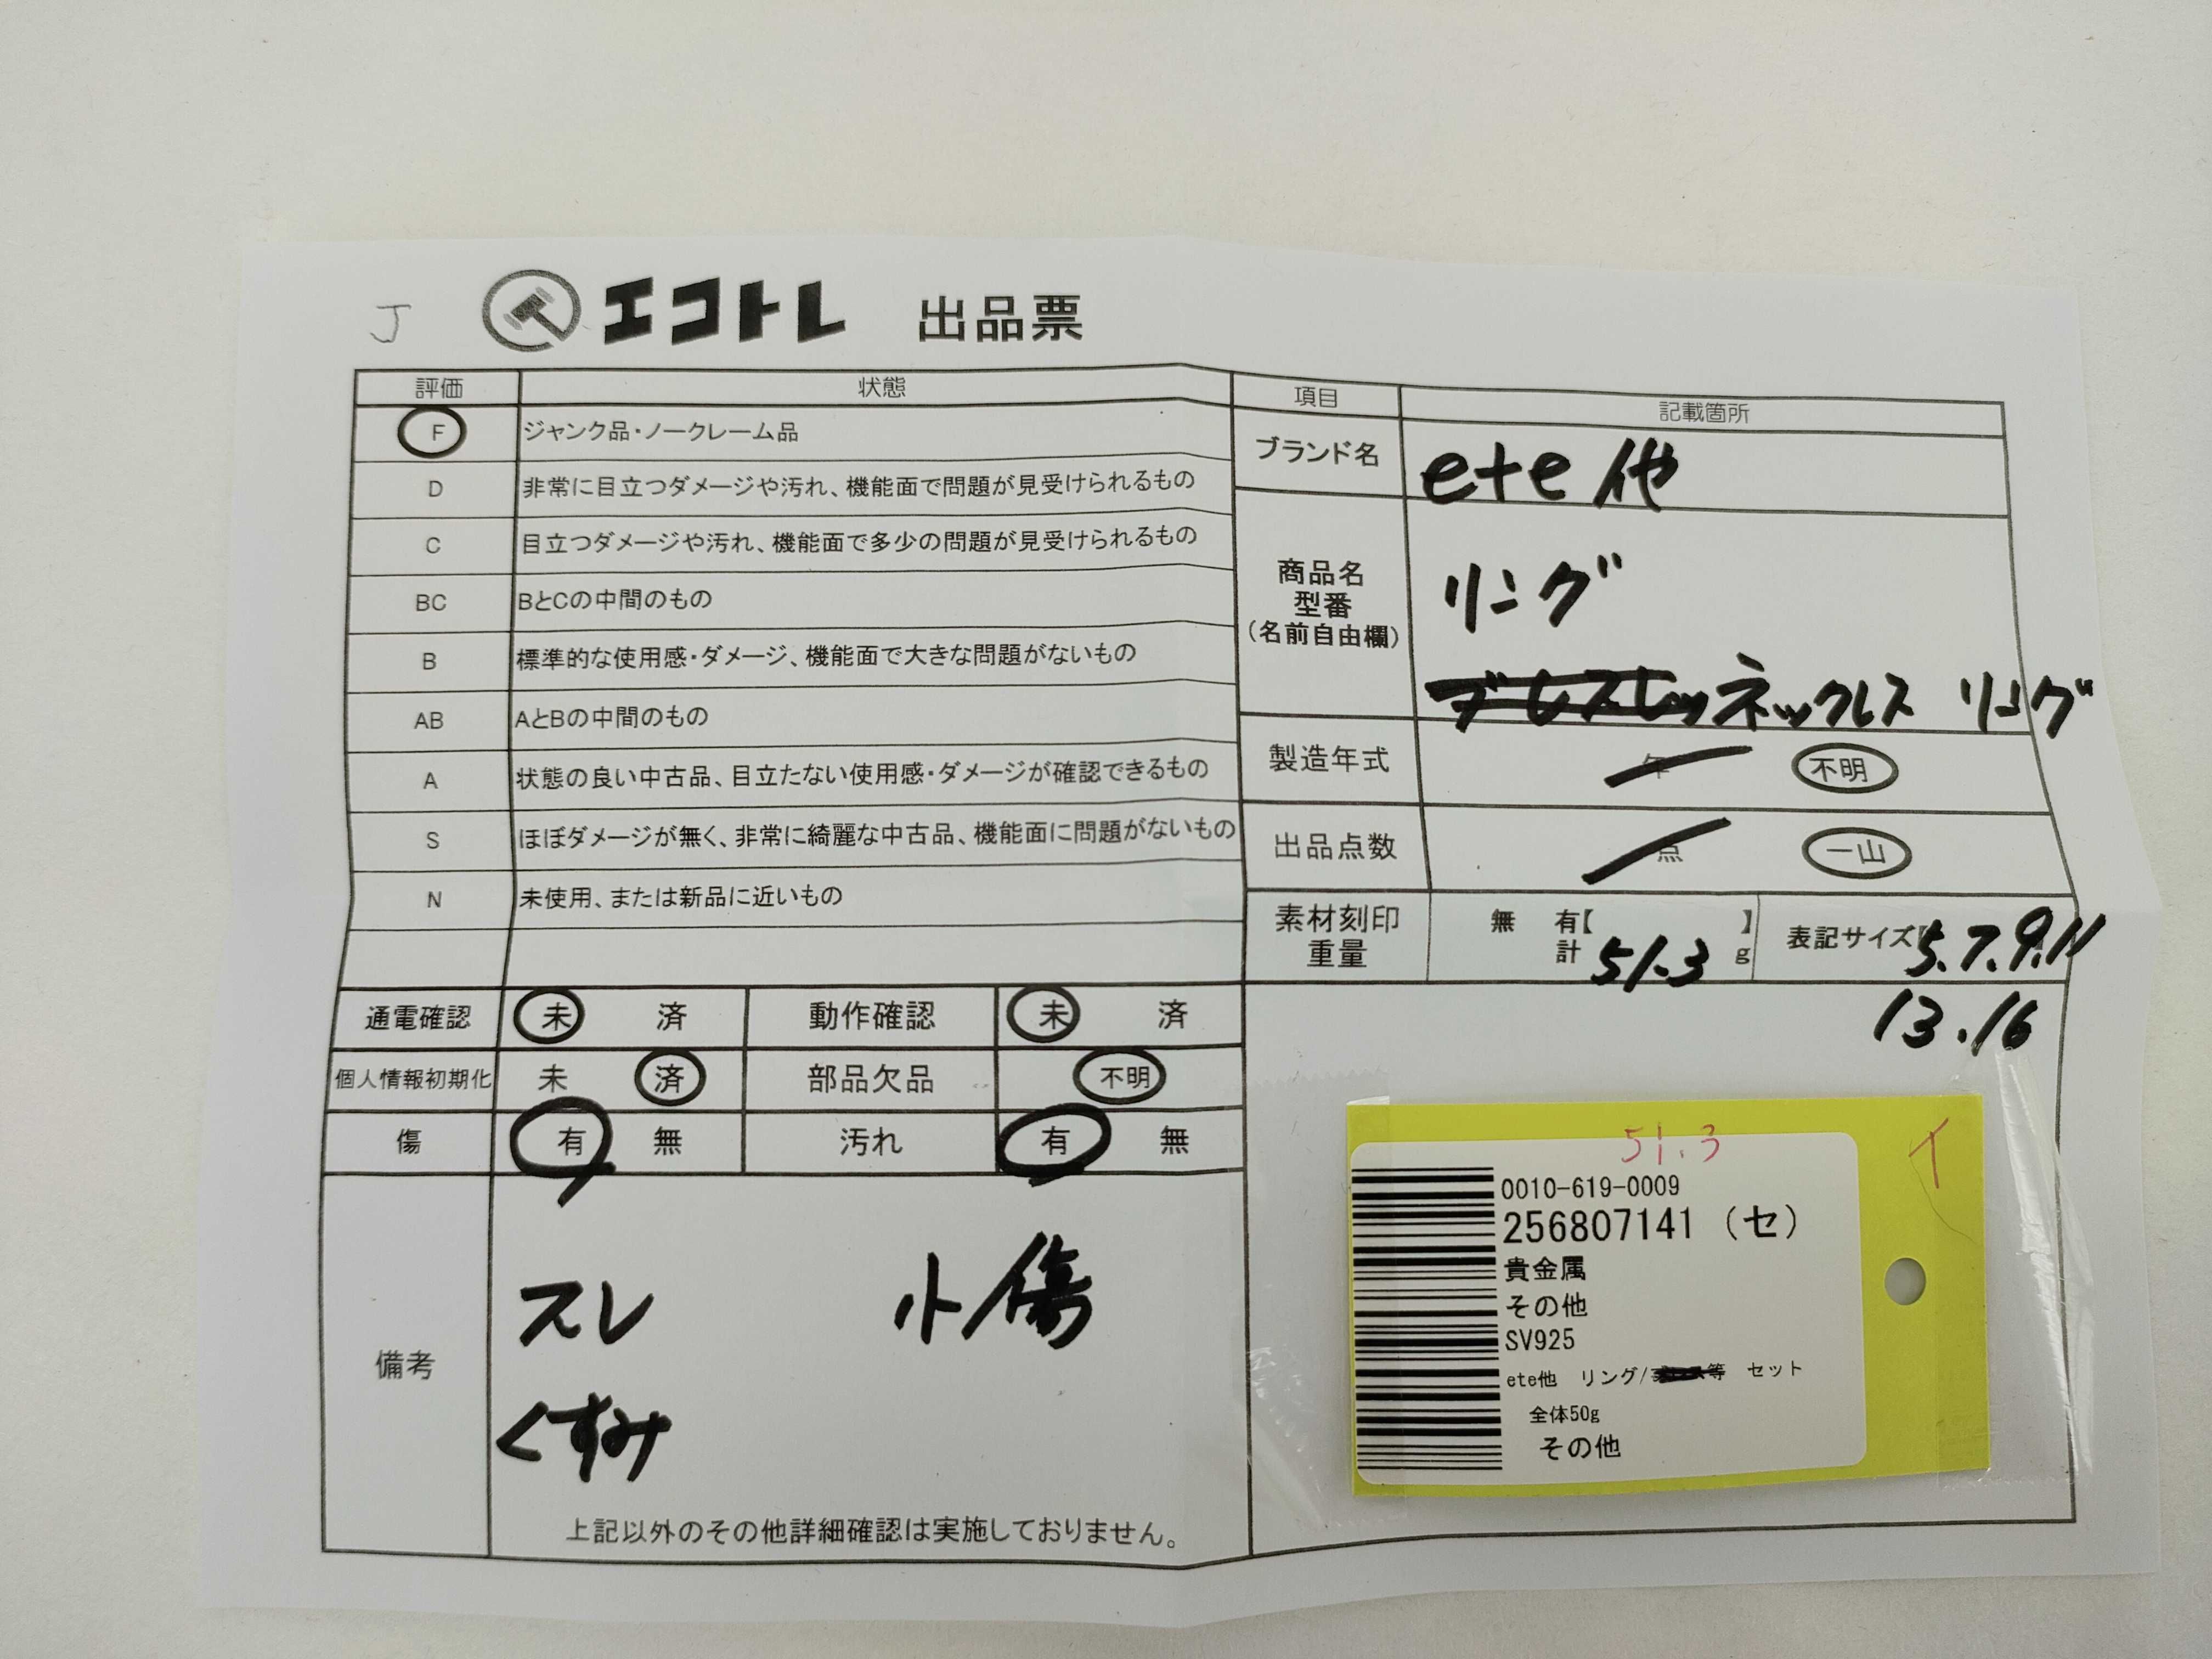 J
エコトレ 出品票
評価 状態
F ジャンク品・ノークレーム品
D 非常に目立つダメージや汚れ、機能面で問題が見受けられるもの
C 目立つダメージや汚れ、機能面で多少の問題が見受けられるもの
BC BとCの中間のもの
B 標準的な使用感・ダメージ、機能面で大きな問題がないもの
AB AとBの中間のもの
A 状態の良い中古品、目立たない使用感・ダメージが確認できるもの
S ほぼダメージが無く、非常に綺麗な中古品、機能面に問題がないもの
N 未使用、または新品に近いもの
通電確認 未 済 動作確認 未 済
個人情報初期化 未 済 部品欠品 不明
傷 有 無 汚れ 有 無
備考
スレ 小傷
くすみ
上記以外のその他詳細確認は実施しておりません。
項目 記載箇所
ブランド名 ete 他
商品名
型番
(名前自由欄)
リング
ブレスレッ ネックレス リング
製造年式 年 不明
出品点数 点 一山
素材刻印 無 有【 】
重量 計 51.3 g
表記サイズ【5.7.9.11
13.16
51.3 イ
0010-619-0009
256807141 (セ)
貴金属
その他
SV925
ete他 リング/等 セット
全体50g
その他